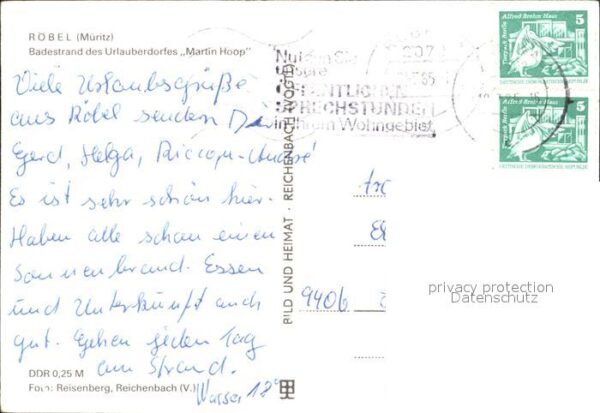 RÖBEL (Müritz)
Badestrand des Urlauberdorfes „Martin Hoop"
Viele Urlaubsgrüße
aus Röbel senden Dir
Gerd, Helga,
Es ist sehr schön hier.
Haben alle schon einen
Sonnenbrand. Essen
und Unterkunft auch
gut. Gehen jeden Tag
am Strand.
Wasser 18°
DDR 0,25 M
Foto: Reisenberg, Reichenbach (V.)
BILD UND HEIMAT · REICHENBACH (VOGTL)
Nutzen Sie
unsere
ÖFFENTLICHEN
SPRECHSTUNDEN
in Ihrem Wohngebiet
Alfred Brehm Haus
5
Tierpark Berlin
DEUTSCHE DEMOKRATISCHE REPUBLIK
Alfred Brehm Haus
5
Tierpark Berlin
DEUTSCHE DEMOKRATISCHE REPUBLIK
9406
privacy protection
Datenschutz